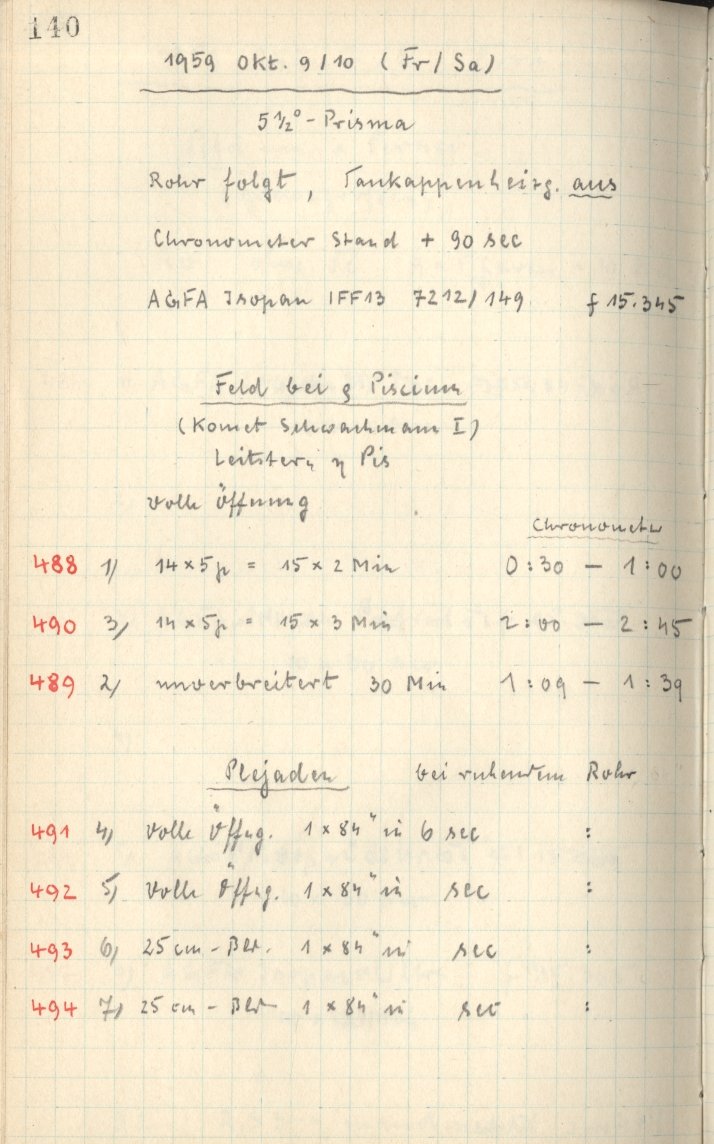 140
1959 Okt. 9/10 (Fr/Sa)
5 1/2° - Prisma
Rohr folgt, Taukappenheizg. aus
Chronometer Stand + 90 sec
AGFA Isopan IFF13 7212/149 f 15.345
Feld bei ρ Piscium
(Komet Schwachmann I)
Leitstern η Pis
volle Öffnung
Chronometer
488 1) 14×5μ = 15×2 Min 0:30 – 1:00
490 3) 14×5μ = 15×3 Min 2:00 – 2:45
489 2) unverbreitert 30 Min 1:09 – 1:39
Plejaden bei ruhendem Rohr
491 4) volle Öffng. 1×84" in 6 sec :
492 5) volle Öffng. 1×84" in sec :
493 6) 25 cm - Bld. 1×84" in sec :
494 7) 25 cm - Bld 1×84" in sec :